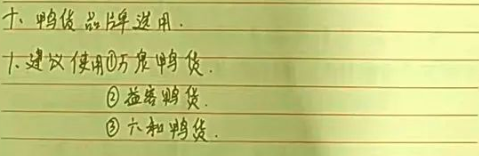 十、鸭货品牌选用.
1、建议使用①万泉鸭货.
②益客鸭货.
③六和鸭货.